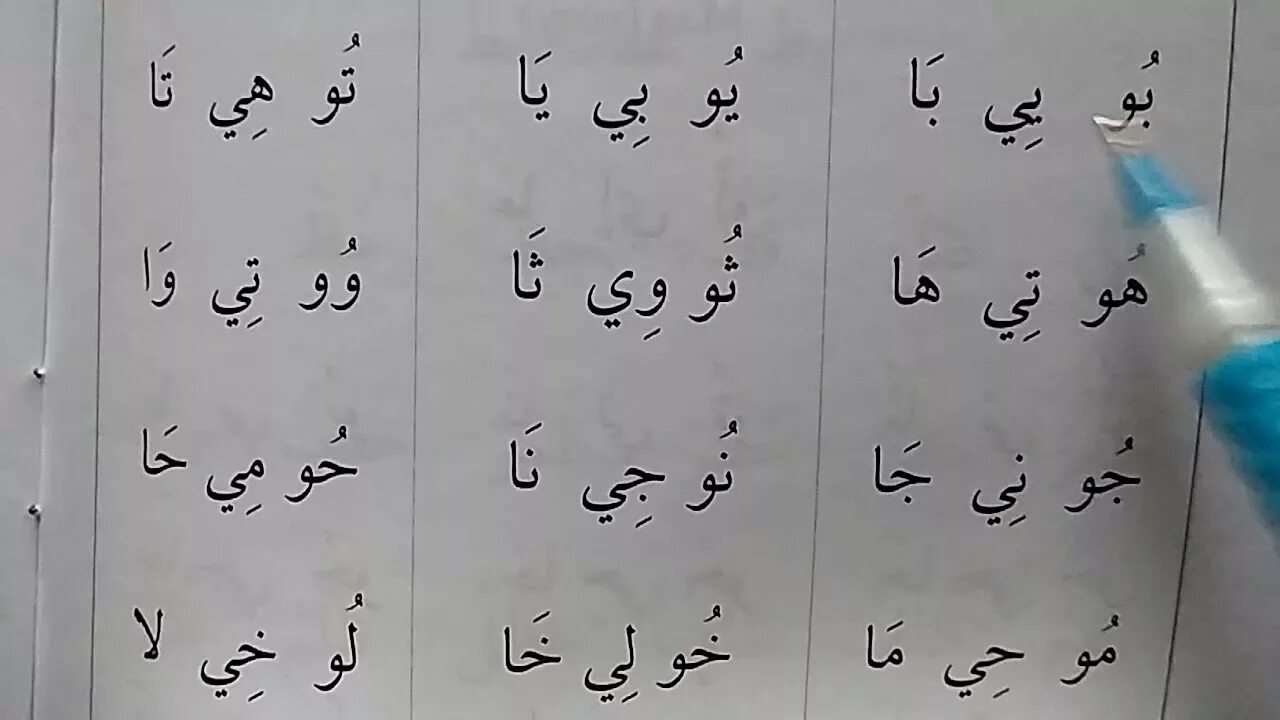 بُو يِي بَا يُو بِي يَا تُو هِي تَا
هُو تِي هَا ثُو وِي ثَا وُو تِي وَا
جُو نِي جَا نُو جِي نَا حُو مِي حَا
مُو حِي مَا خُو لِي خَا لُو خِي لا